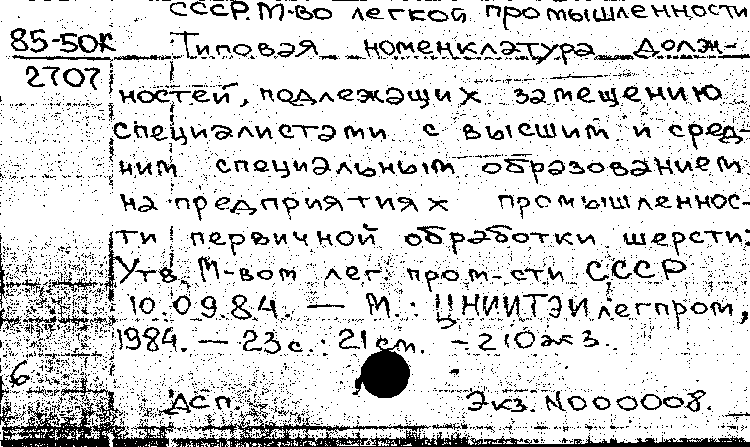 СССР. М-во легкой промышленности
85-50К Типовая номенклатура долж-
2707
ностей, подлежащих замещению
специалистами с высшим и сред-
ним специальным образованием
на предприятиях промышленнос-
ти первичной обработки шерсти:
Утв. М-вом лег. пром-сти СССР
10.09.84. — М.: ЦНИИТЭИлегпром,
1984. — 23 с.: 21 см. - 210 экз.
6
ДСП. Экз. N000008.